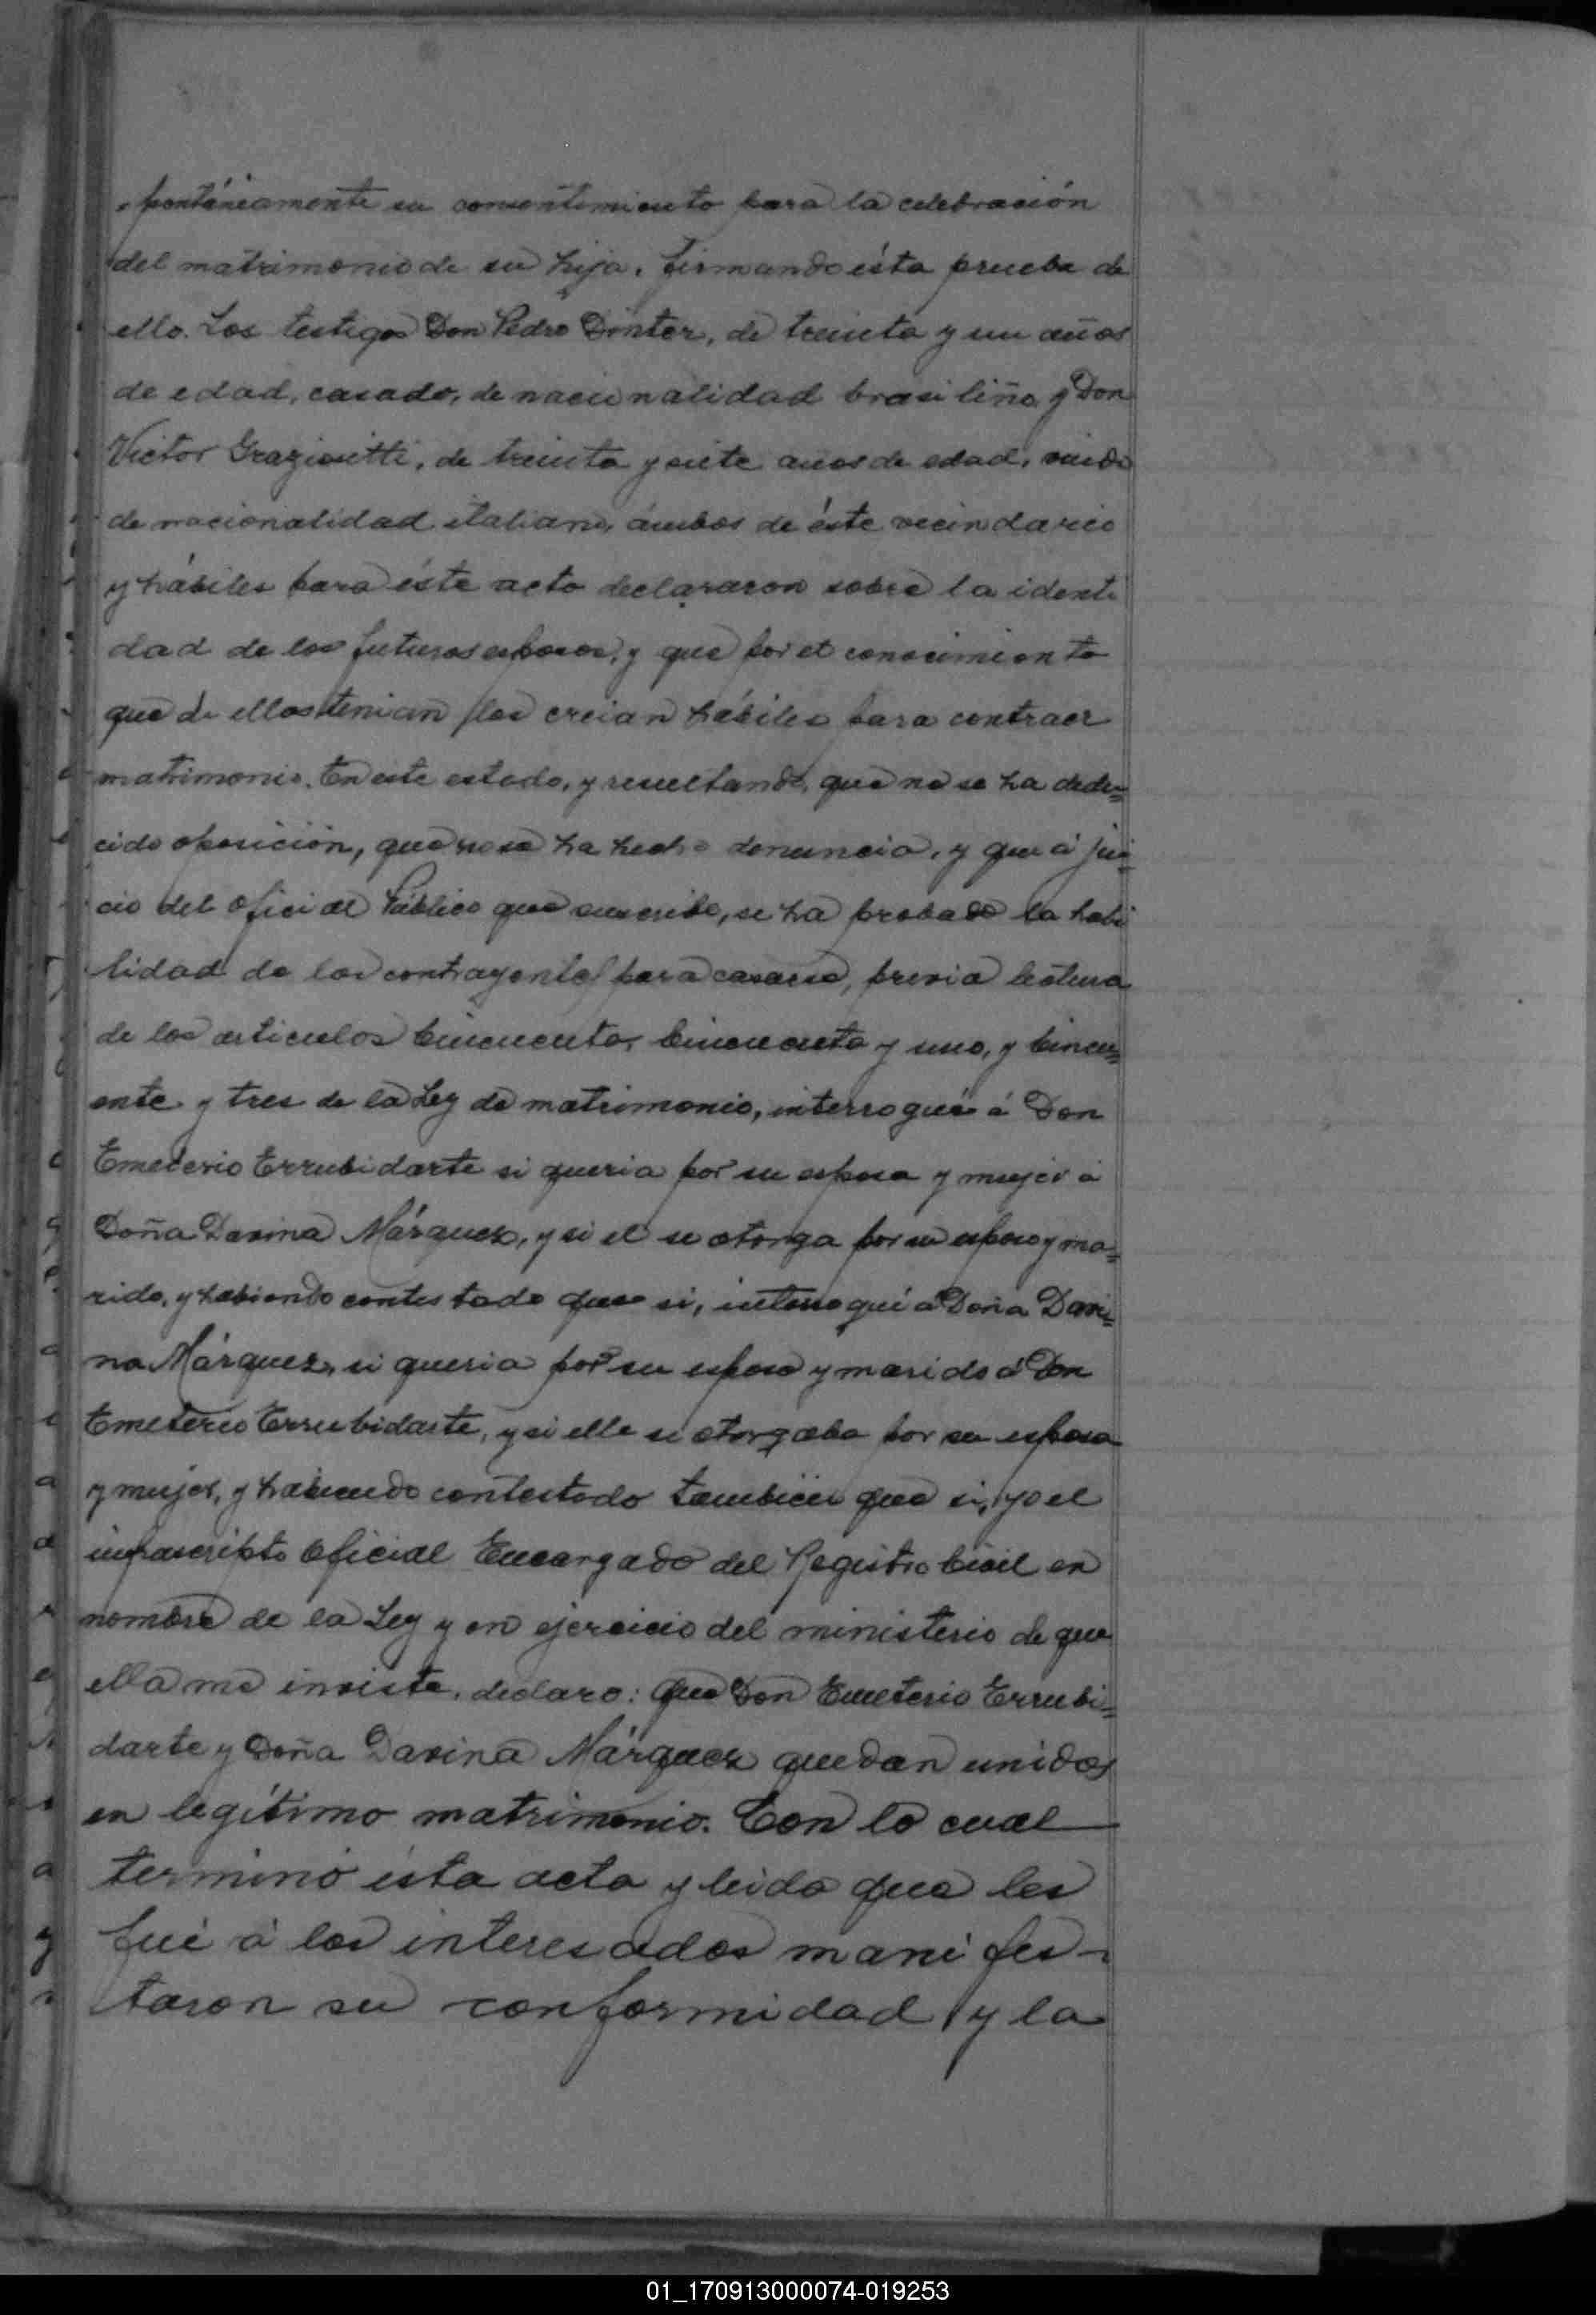 spontáneamente su consentimiento para la celebración
del matrimonio de su hija, firmando ésta prueba de
ello. Los testigos Don Pedro Dinter, de treinta y un años
de edad, casado, de nacionalidad brasileña y Don
Victor Graziosetti, de treinta y siete anos de edad, viudo
de nacionalidad italiana, ámbos de éste vecindario
y hábiles para éste acto declararon sobre la identi
dad de los futuros esposos, y que por el conocimiento
que de ellos tenian los creian hábiles para contraer
matrimonio. En este estado, y resultando, que no se ha dedu=
cido oposición, que no se ha hecho denuncia, y que á jui=
cio del oficial Público que suscribe, se ha probado la habi
lidad de los contrayentes para casarse, previa lectura
de los articulos Cincuenta, Cincuenta y uno, y Cincu=
enta y tres de la Ley de matrimonio, interrogué á Don
Emeterio Errubidarte si queria por su esposa y mujer á
Doña Davina Márquez, y si el se otorga por su esposo y ma=
rido, y habiendo contestado que si, interrogué á Doña Davi=
na Márquez, si queria por su esposo y marido á Don
Emeterio Errubidarte, y si ella se otorgaba por su esposa
y mujer, y habiendo contestado también que si, yo el
infrascripto Oficial Encargado del Registro Civil en
nombre de la Ley y en ejercicio del ministerio de que
ella me inviste, declaro: que Don Emeterio Errubi=
darte y Doña Davina Márquez quedan unidos
en legítimo matrimonio. Con lo cual
terminó ésta acta y leida que les
fué á los interesados manifes-
taron su conformidad y la
01_170913000074-019253